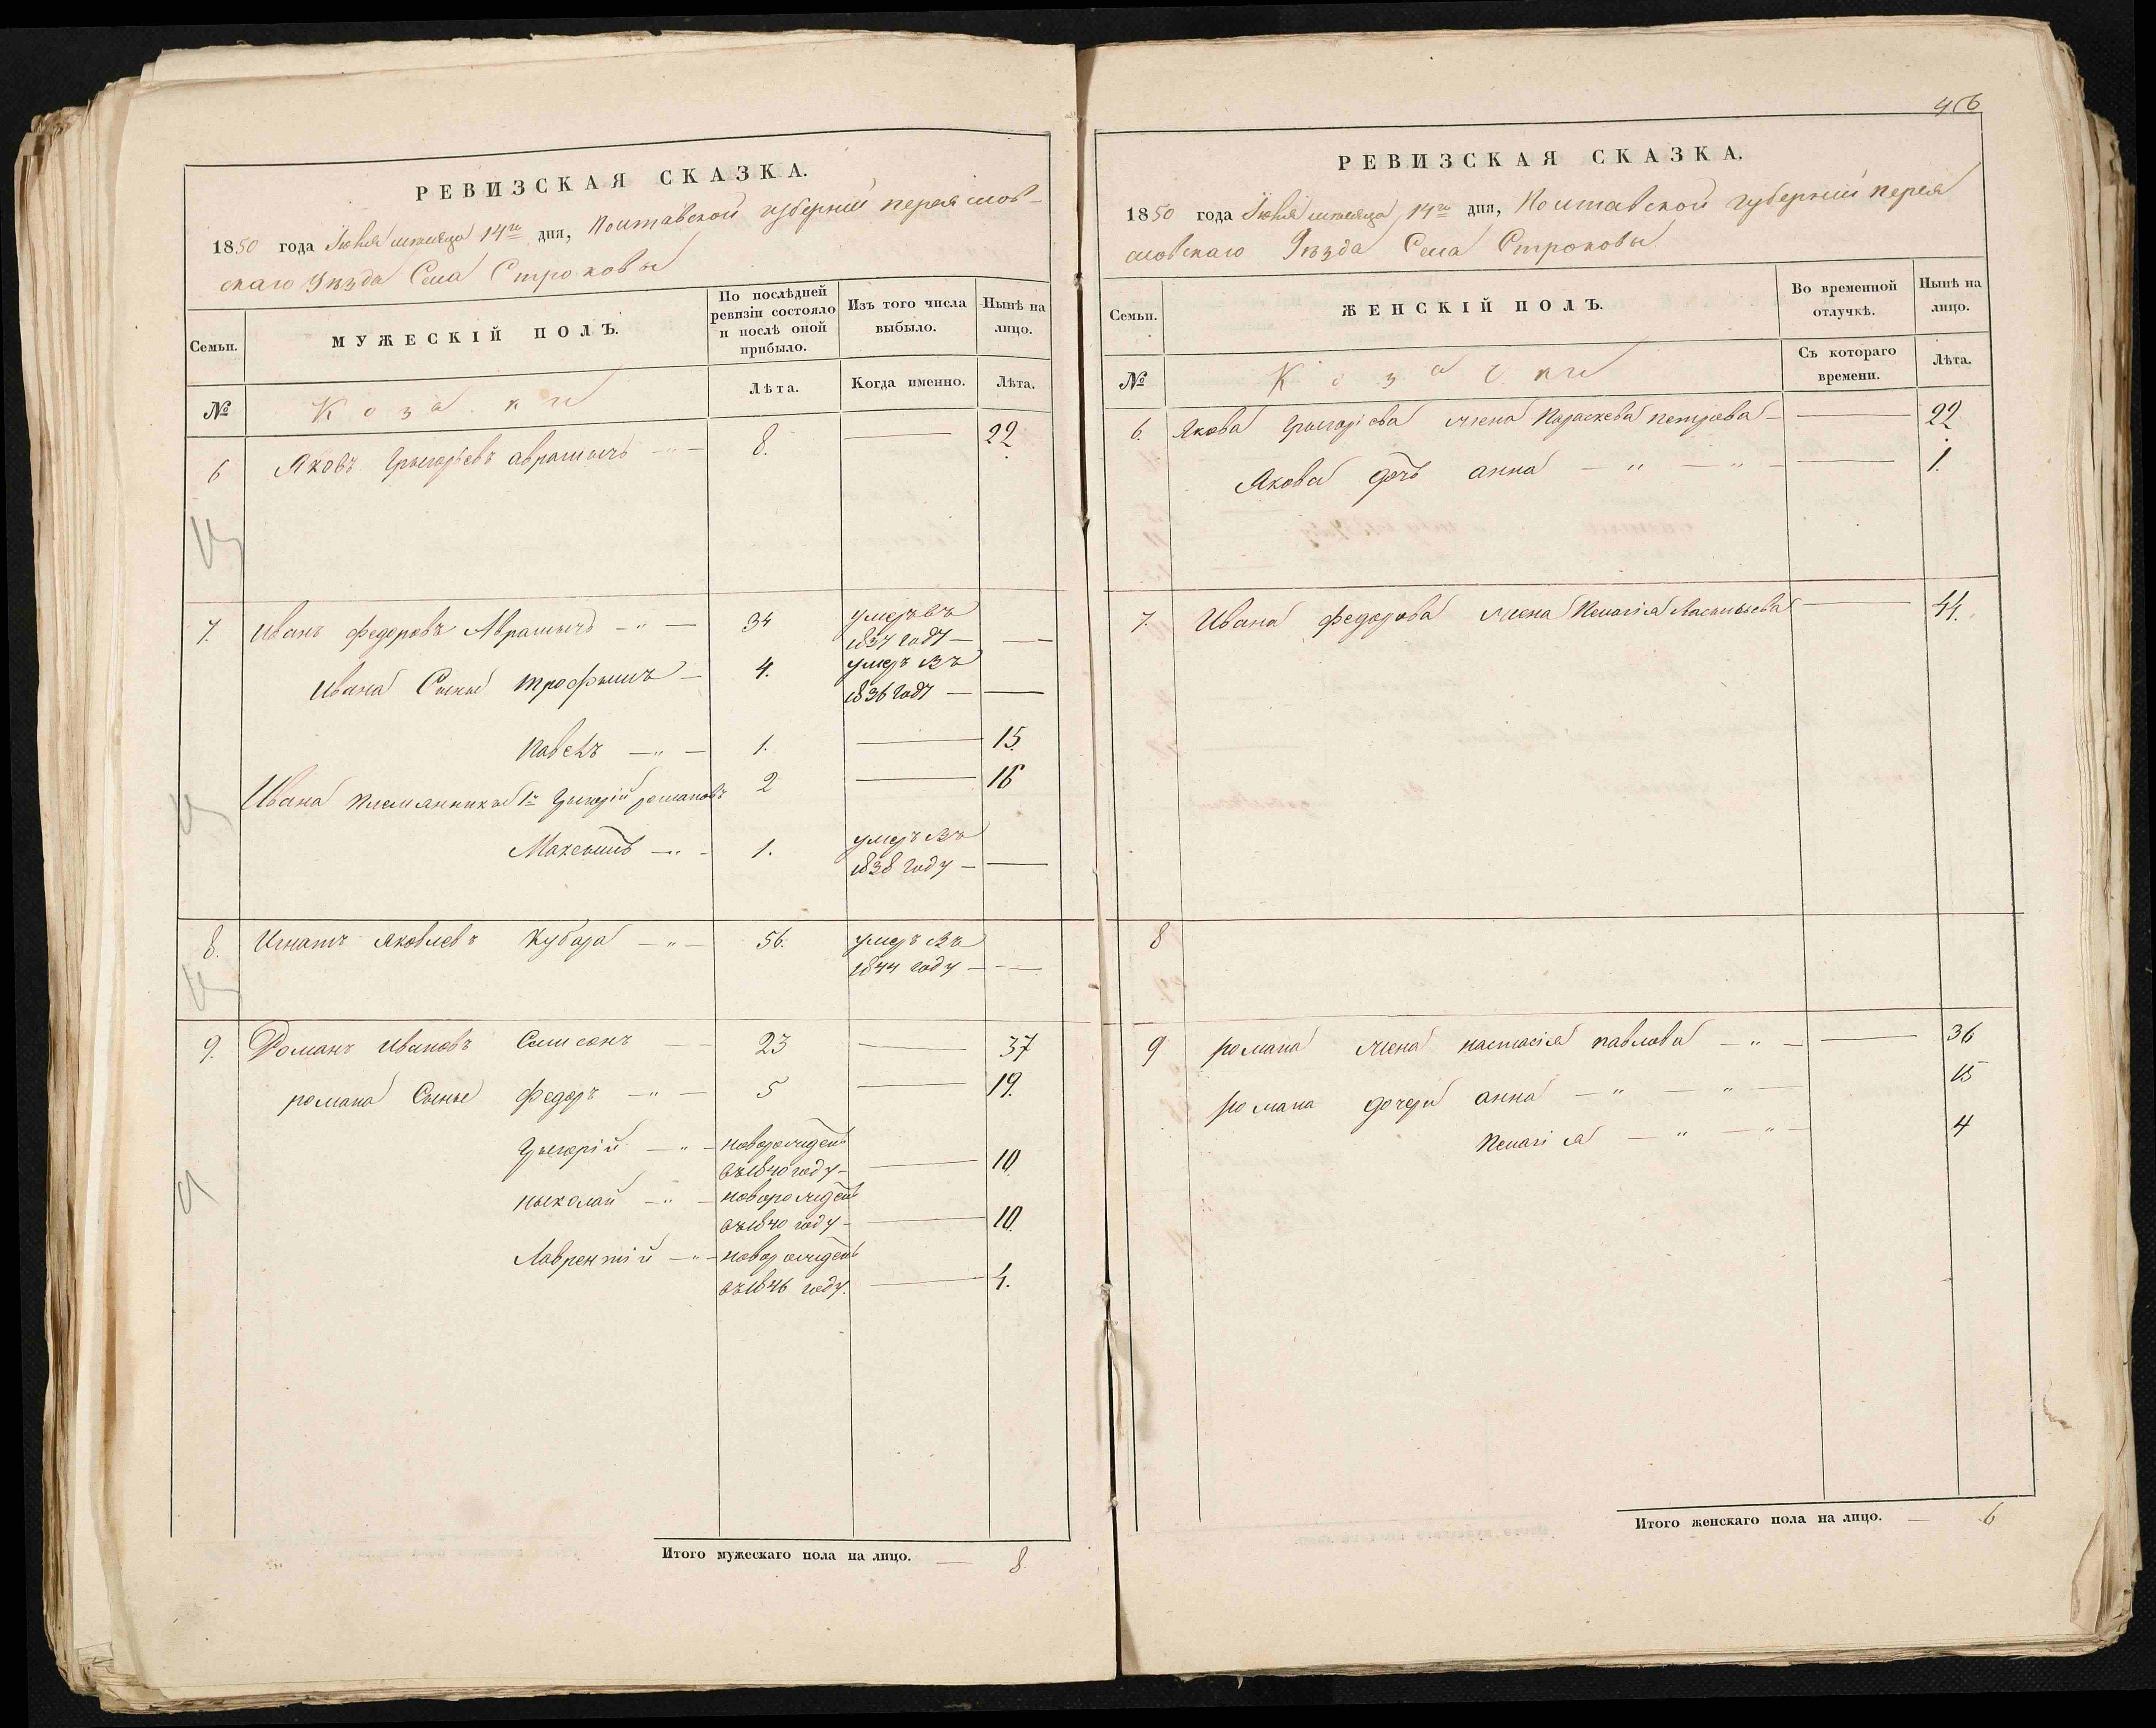 РЕВИЗСКАЯ СКАЗКА.
1850 года Июня месяца 14го дня, Полтавской губернии переяслов-
скаго Уѣзда Села Строковы
Семьи.
МУЖЕСКІЙ ПОЛЪ.
По послѣдней ревизіи состояло и послѣ оной прибыло.
Изъ того числа выбыло.
Нынѣ на лицо.
№
Козаки
Лѣта.
Когда именно.
Лѣта.
6 Яковъ Григорьевъ аврамычъ —"— 8. — 22.
7. Иванъ федоровъ Аврамычъ —"— 34 умеръ въ
1837 году — —
Ивана Сыны трофимъ — 4. умеръ въ
1836 году — —
павелъ —"— 1. — 15.
Ивана племянники 1й Григорій романовъ 2 — 16
Максымъ —"— 1. умеръ въ
1838 году — —
8. Игнатъ яковлевъ Кубара —"— 56. умеръ въ
1844 году — —
9. Романъ Ивановъ Самсонъ — 23 — 37
романа Сынье федоръ —"— 5 — 19.
Григорій —"— новорожденъ
въ 1840 году — — 10
николай —"— новорожденъ
въ 1840 году — — 10.
Лаврентій —"— новорожденъ
въ 1846 году. — 4.
Итого мужескаго пола на лицо. — 8
456
РЕВИЗСКАЯ СКАЗКА.
1850 года Июня месяца 14го дня, Полтавской губернии перея
словскаго Уѣзда Села Строковы
Семьи.
ЖЕНСКІЙ ПОЛЪ.
Во временной отлучкѣ.
Нынѣ на лицо.
№
Козачки
Съ котораго времени.
Лѣта.
6. Якова Григоріева жена Параскева петрова — — 22
Якова дочь анна —"—"— — 1.
7. Ивана федорова жена Пелагія Васильева — 44.
8
9 романа жена настасія павлова —"— — 36
романа дочери анна —"—"— 15
Пелагія —"—"— 4
Итого женскаго пола на лицо. — 6